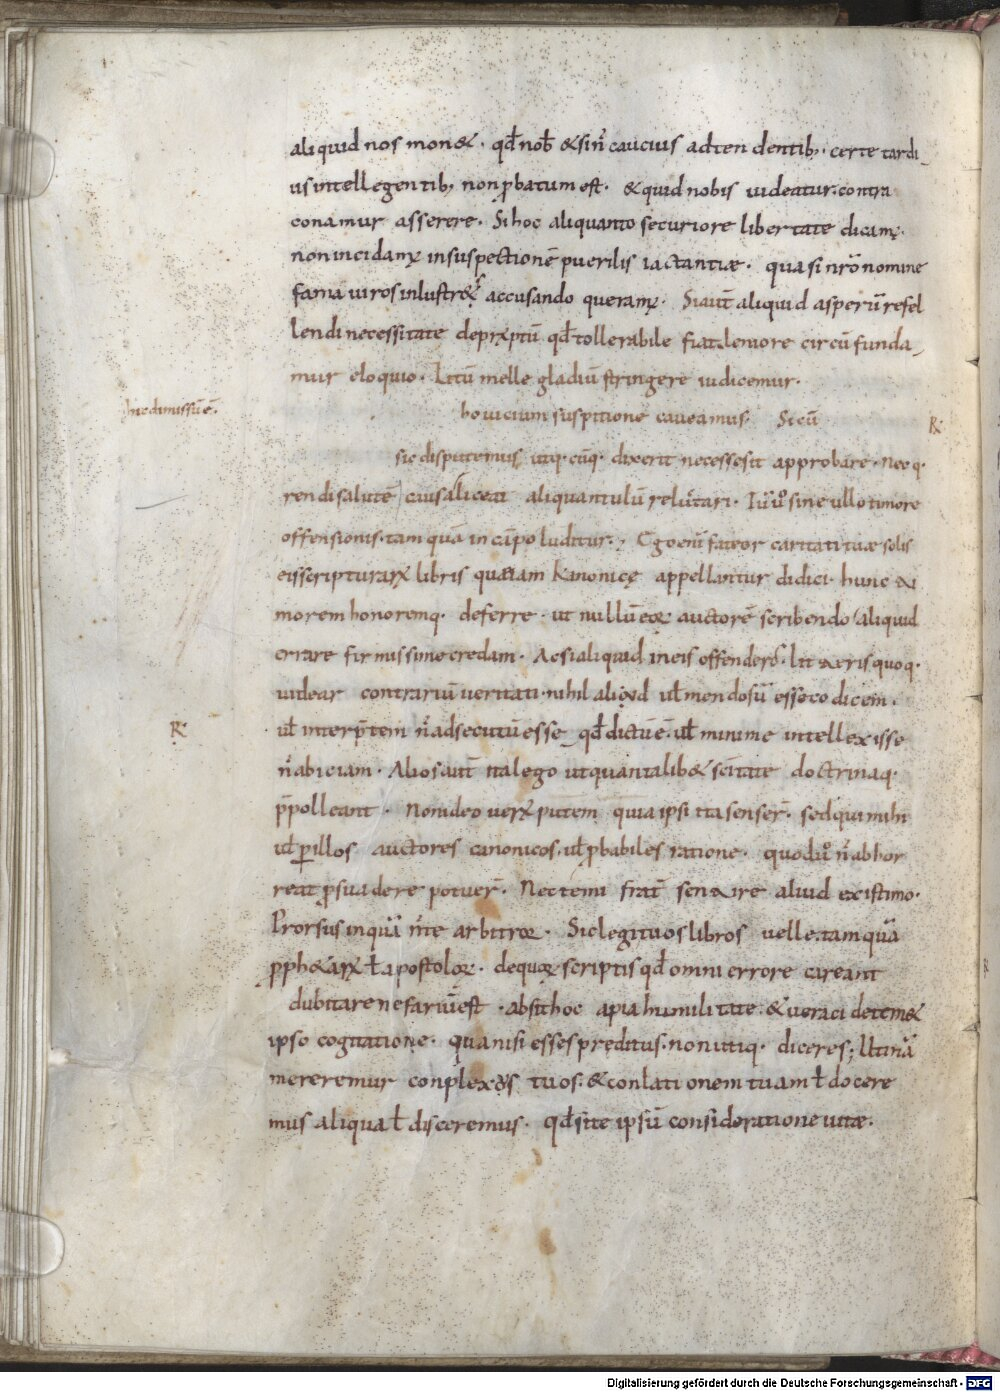 aliquid nos mon&. qd̄ nob̄ & sin̄ caucius adtendentib; certe tardi
us intellegentib; non p̄batum est. & quid nobis uideatur. contra
conamur asserere. Si hoc aliquanto securiore libertate dicam;
non incidam; in suspectionē puerilis iactantiæ. quasi nr̄o nomine
fama uiros inlustres accusando queram;. Si aut̄ aliquid asperū refel
lendi necessitate depr&ptū qd̄ tollerabile fiat. leniore circū funda
mur eloquio. Litū melle gladiū stringere iudicemur.
hic dimissū ē.
ho uicium suspitionē caueamus. Si cū
sic disputemus utq; cūq; dixerit necesse sit approbare. nec q;
rendi salutē causa liceat aliquantulū reluctari. Tū uo sine ullo timore
offensionis. tam quā in cāpo luditur. Ego enī fateor caritati tuæ solis
eis scripturarꝝ libris quæ iam kanonicę appellantur didici hunc ti
morem honoremq; deferre. ut nullū eoꝝ auctorē scribendo aliquid
errare firmissime credam. Ac si aliquid in eis offendero lit&eris quoq;
uidear contrariū ueritati. nihil aliud ul̄ mendosū esse codicem.
ul̄ interp̄tem n̄ adsecutū esse qd̄ dictū ē. ul̄ minime intellexisse
n̄ abiciam. Alios aut̄ ita lego ut quantalib& sc̄itate doctrinaq;
p̄polleant. Non ideo uerꝝ putem quia ipsi ita senser̄. sed qui mihi
ul̄ ꝑ illos auctores canonicos. ul̄ p̄babiles ratione. quod uo n̄ abhor
reat p̄suadere potuer̄. Nec te mi frat̄ sentire aliud existimo.
Prorsus inquā n̄ te arbitror. Sic legi tuos libros uelle. tam quā
p̄ph&arꝝ ł apostoloꝝ. de quoꝝ scriptis qd̄ omni errore careant
dubitare nefariū est. absit hoc a pia humilitate. & ueraci de tem&
ipso cogitatione. qua nisi esses preditus. non utiq; diceres; Utinā
mereremur conplexus tuos. & conlationem tuam ł docere
mus aliqua ł disceremus. qd̄ si te ipsū consideratione uitæ.